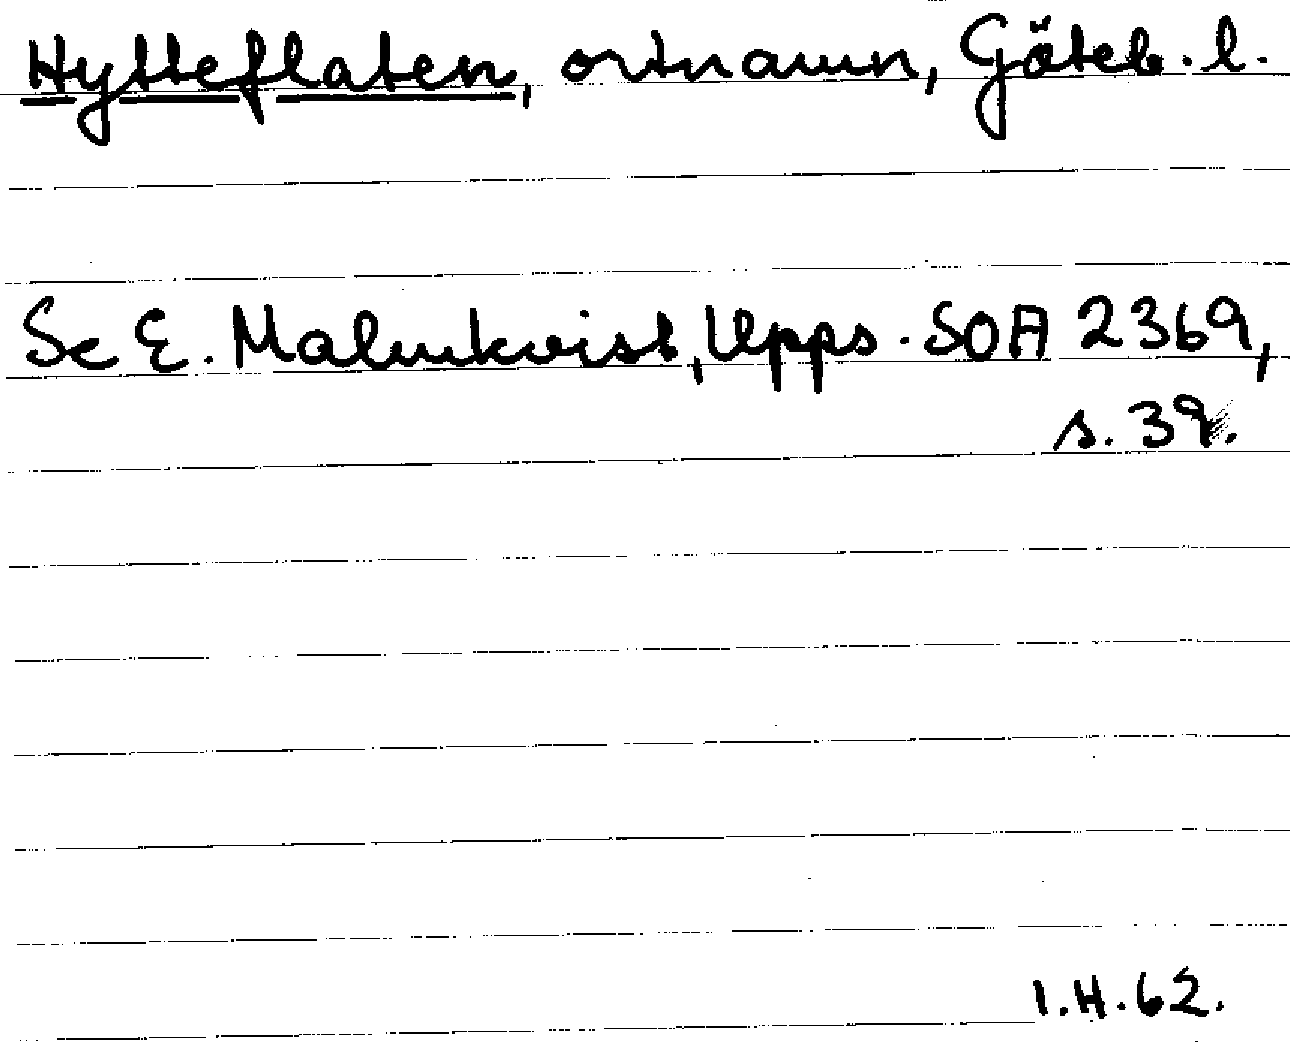 Hytteflaten, ortnamn, Göteb. l.
Se E. Malmkvist, Upps. SOA 2369,
s. 39.
I.H.62.